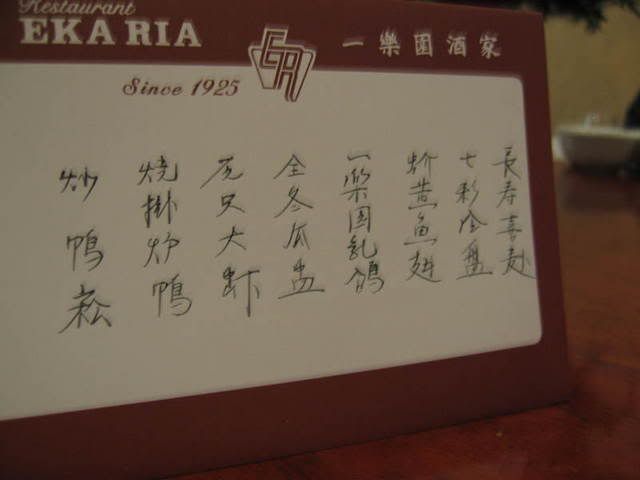 Restaurant
EKA RIA
一樂園酒家
Since 1925
長寿喜赴
七彩冷盘
蚧黄鱼翅
一樂园乳鴿
全冬瓜盅
大虾
燒掛炉鴨
炒鴨崧